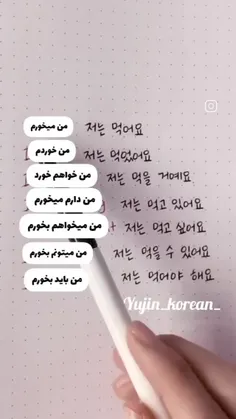 من میخورم 저는 먹어요
من خوردم 저는 먹었어요
من خواهم خورد 저는 먹을 거예요
من دارم میخورم 저는 먹고 있어요
من میخواهم بخورم 저는 먹고 싶어요
من میتونم بخورم 저는 먹을 수 있어요
من باید بخورم 저는 먹어야 해요
Yujin_korean_